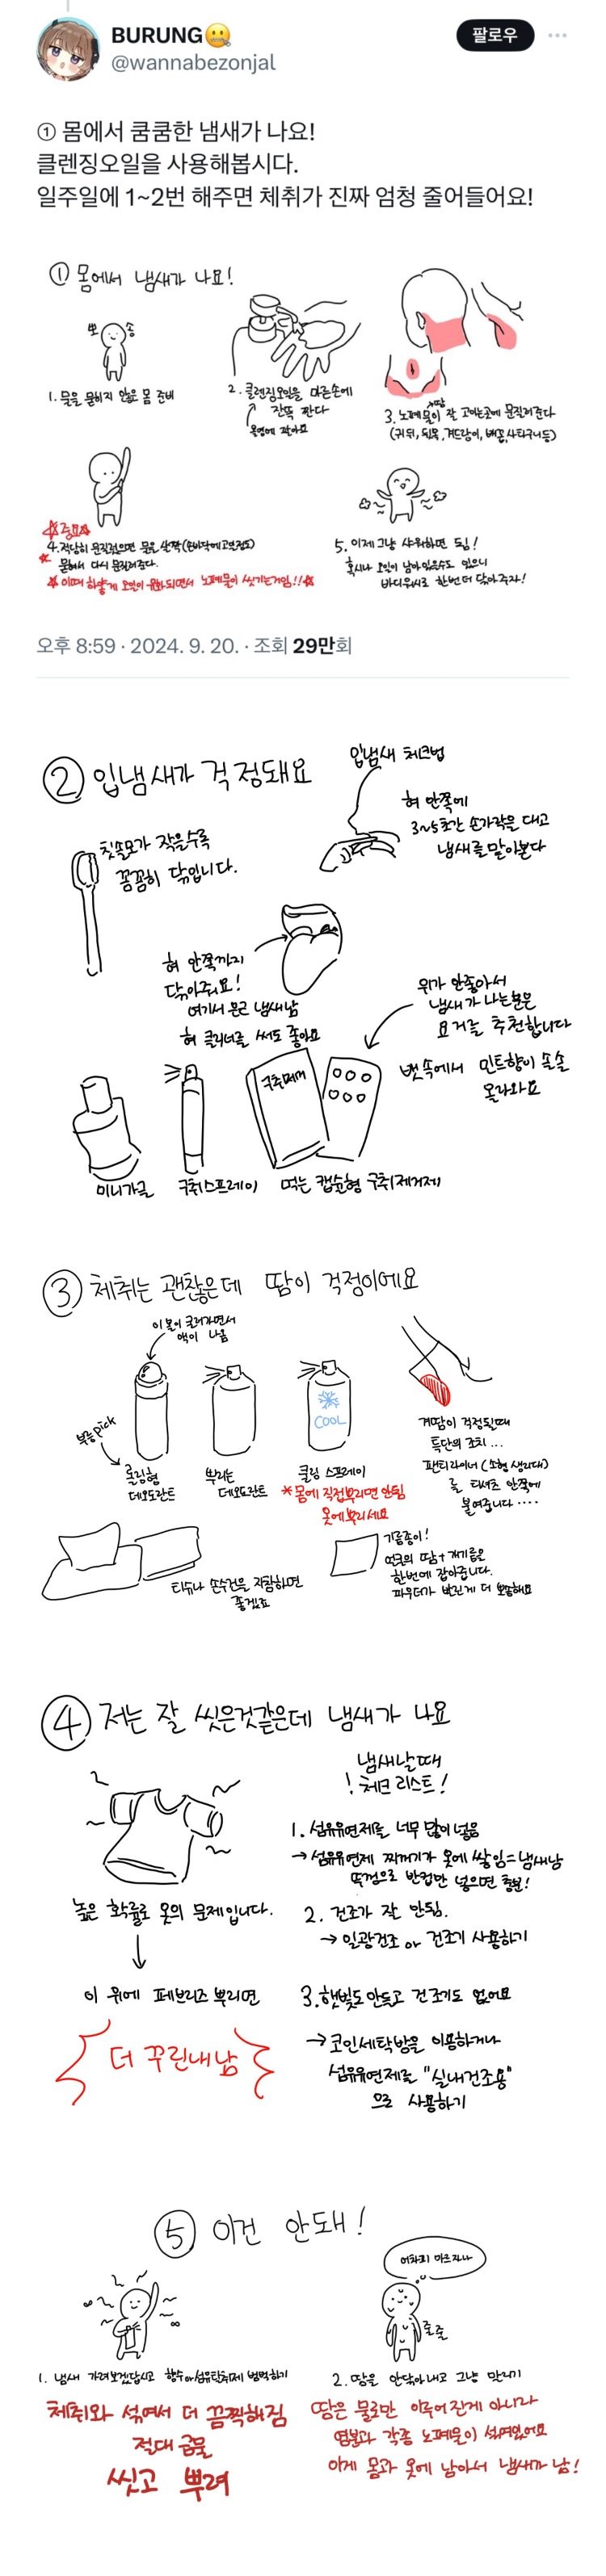 BURUNG🤐
@wannabezonjal
팔로우
① 몸에서 쿰쿰한 냄새가 나요!
클렌징오일을 사용해봅시다.
일주일에 1~2번 해주면 체취가 진짜 엄청 줄어들어요!
① 몸에서 냄새가 나요!
뽀 송
1. 물을 묻히지 않은 몸 준비
2. 클렌징오일을 마른손에
잔뜩 짠다
3. 노폐물이 잘 고이는곳에 문질러준다
땀
(귀 뒤, 뒷목, 겨드랑이, 배꼽, 사타구니등)
☆중요☆
4. 적당히 문질렀으면 물을 살짝(손바닥에 고인정도)
묻혀서 다시 문질러준다.
☆ 이때 하얗게 오일이 유화되면서 노폐물이 씻기는거임!!☆
5. 이제 그냥 샤워하면 됨!
혹시나 오일이 남아있을수도 있으니
바디워시로 한번 더 닦아주자!
오후 8:59 · 2024. 9. 20. · 조회 29만회
② 입냄새가 걱정돼요
입냄새 체크법
혀 안쪽에
3~5초간 손가락을 대고
냄새를 맡아본다
칫솔모가 작을수록
꼼꼼히 닦입니다.
혀 안쪽까지
닦아주세요!
여기서 은근 냄새남
혀 클리너를 써도 좋아요
위가 안좋아서
냄새가 나는분은
요거를 추천합니다
뱃속에서 민트향이 솔솔
올라와요
구취제거
미니가글
구취스프레이
먹는 캡슐형 구취제거제
③ 체취는 괜찮은데 땀이 걱정이에요
이 볼이 굴러가면서
액이 나옴
부릉pick
롤링형
데오도란트
뿌리는
데오도란트
COOL
쿨링 스프레이
*몸에 직접뿌리면 안됨
옷에뿌리세요
겨땀이 걱정될때
특단의 조치...
팬티라이너(소형 생리대)
를 티셔츠 안쪽에
붙여줍니다....
티슈나 손수건을 지참하면
좋겠죠
기름종이!
얼굴의 땀+개기름을
한번에 잡아줍니다.
파우더가 발린게 더 뽀송해요
④ 저는 잘 씻은것같은데 냄새가 나요
냄새날때
!체크 리스트!
높은 확률로 옷의 문제입니다.
이 위에 페브리즈 뿌리면
더 꾸린내남
1. 섬유유연제를 너무 많이 넣음
→ 섬유유연제 찌꺼기가 옷에 쌓임=냄새남
뚜껑으로 반컵만 넣으면 충분!
2. 건조가 잘 안됨.
→ 일광건조 or 건조기 사용하기
3. 햇빛도 안들고 건조기도 없어요
→ 코인세탁방을 이용하거나
섬유유연제를 "실내건조용"
으로 사용하기
⑤ 이건 안돼!
1. 냄새 가려보겠답시고 향수or섬유탈취제 범벅하기
체취와 섞여서 더 끔찍해짐
절대 금물
씻고 뿌려
어차피 마르자나
줄줄
2. 땀을 안닦아내고 그냥 말리기
땀은 물로만 이루어진게 아니라
염분과 각종 노폐물이 섞여있어요
이게 몸과 옷에 남아서 냄새가 남!